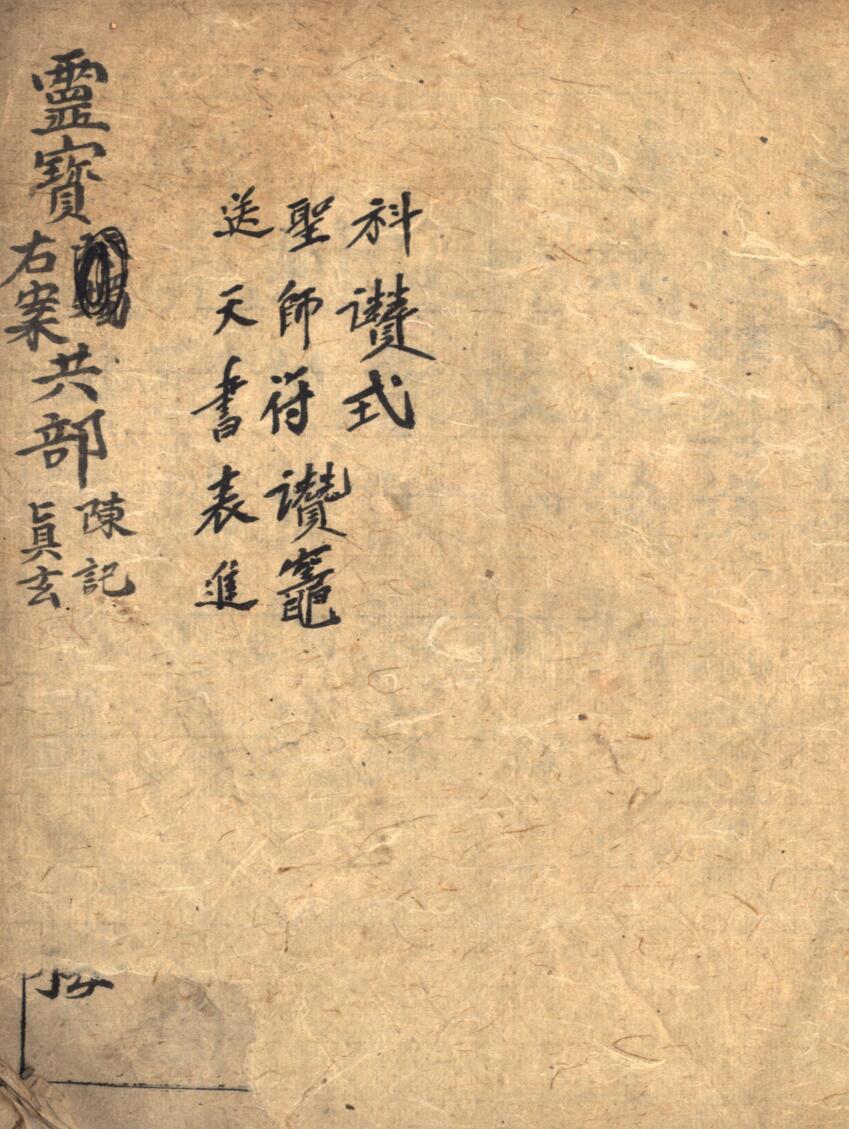 科讚式
聖師符讚竈
送天書表進
靈寶右案共部
陳記
眞玄